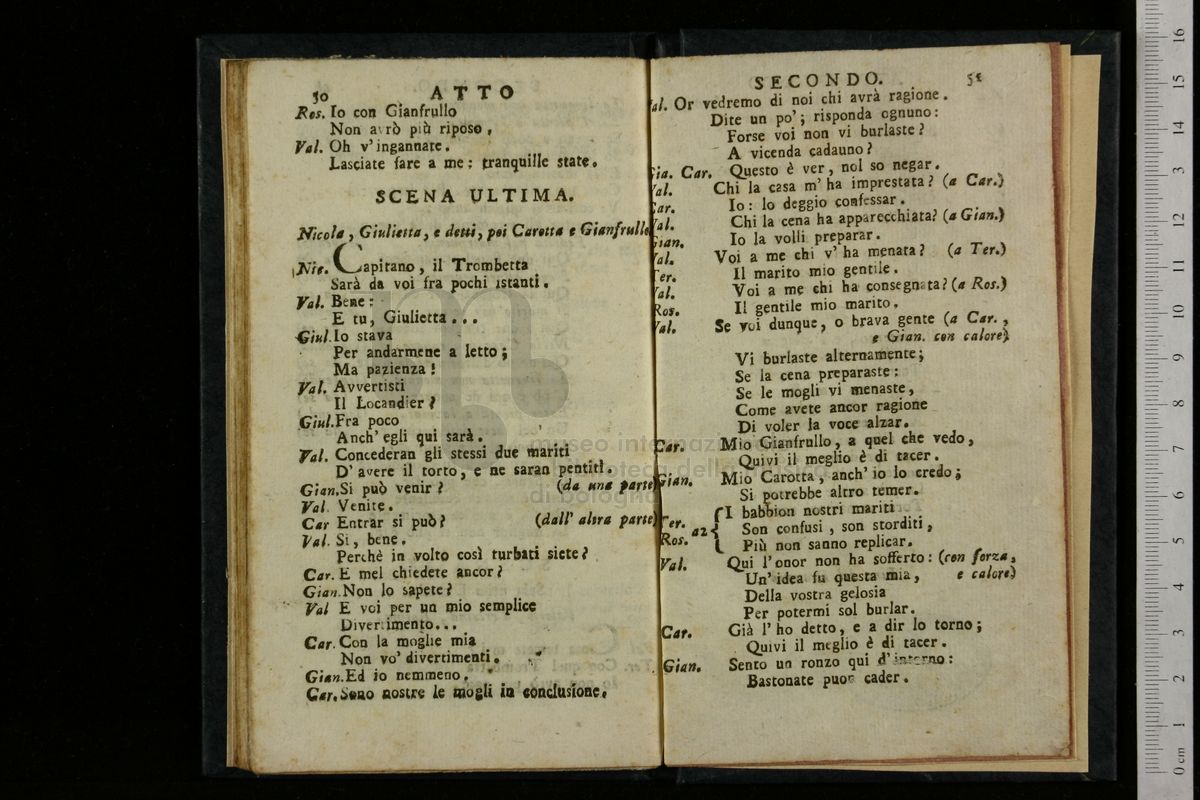 50 ATTO
Ros. Io con Gianfrullo
Non avrò più riposo,
Val. Oh v'ingannate.
Lasciate fare a me: tranquille state.
SCENA ULTIMA.
Nicola, Giulietta, e detti, poi Carotta e Gianfrullo
Nic. Capitano, il Trombetta
Sarà da voi fra pochi istanti.
Val. Bene:
E tu, Giulietta...
Giul. Io stava
Per andarmene a letto;
Ma pazienza!
Val. Avvertisti
Il Locandier?
Giul. Fra poco
Anch'egli qui sarà.
Val. Concederan gli stessi due mariti
D'avere il torto, e ne saran pentiti.
Gian. Si può venir? (da una parte
Val. Venite.
Car Entrar si può? (dall'altra parte)
Val. Si, bene.
Perchè in volto così turbati siete?
Car. E mel chiedete ancor?
Gian. Non lo sapete?
Val E voi per un mio semplice
Divertimento...
Car. Con la moglie mia
Non vo' divertimenti.
Gian. Ed io nemmeno.
Car. Sono nostre le mogli in conclusione.
SECONDO. 51
al. Or vedremo di noi chi avrà ragione.
Dite un po'; risponda ognuno:
Forse voi non vi burlaste?
A vicenda cadauno?
Gia. Car. Questo è ver, nol so negar.
Val. Chi la casa m'ha imprestata? (a Car.)
Car. Io: lo deggio confessar.
Val. Chi la cena ha apparecchiata? (a Gian.)
Gian. Io la volli preparar.
Val. Voi a me chi v'ha menata? (a Ter.)
Ter. Il marito mio gentile.
Val. Voi a me chi ha consegnata? (a Ros.)
Ros. Il gentile mio marito.
Val. Se voi dunque, o brava gente (a Car.,
e Gian. con calore)
Vi burlaste alternamente;
Se la cena preparaste:
Se le mogli vi menaste,
Come avete ancor ragione
Di voler la voce alzar.
Car. Mio Gianfrullo, a quel che vedo,
Quivi il meglio è di tacer.
Gian. Mio Carotta, anch'io lo credo;
Si potrebbe altro temer.
Ter. Ros. a2 { I babbion nostri mariti
Son confusi, son storditi,
Più non sanno replicar.
Val. Qui l'onor non ha sofferto: (con forza,
Un'idea fu questa mia, e calore)
Della vostra gelosia
Per potermi sol burlar.
Car. Già l'ho detto, e a dir lo torno;
Quivi il meglio è di tacer.
Gian. Sento un ronzo qui d'interno:
Bastonate puon cader.